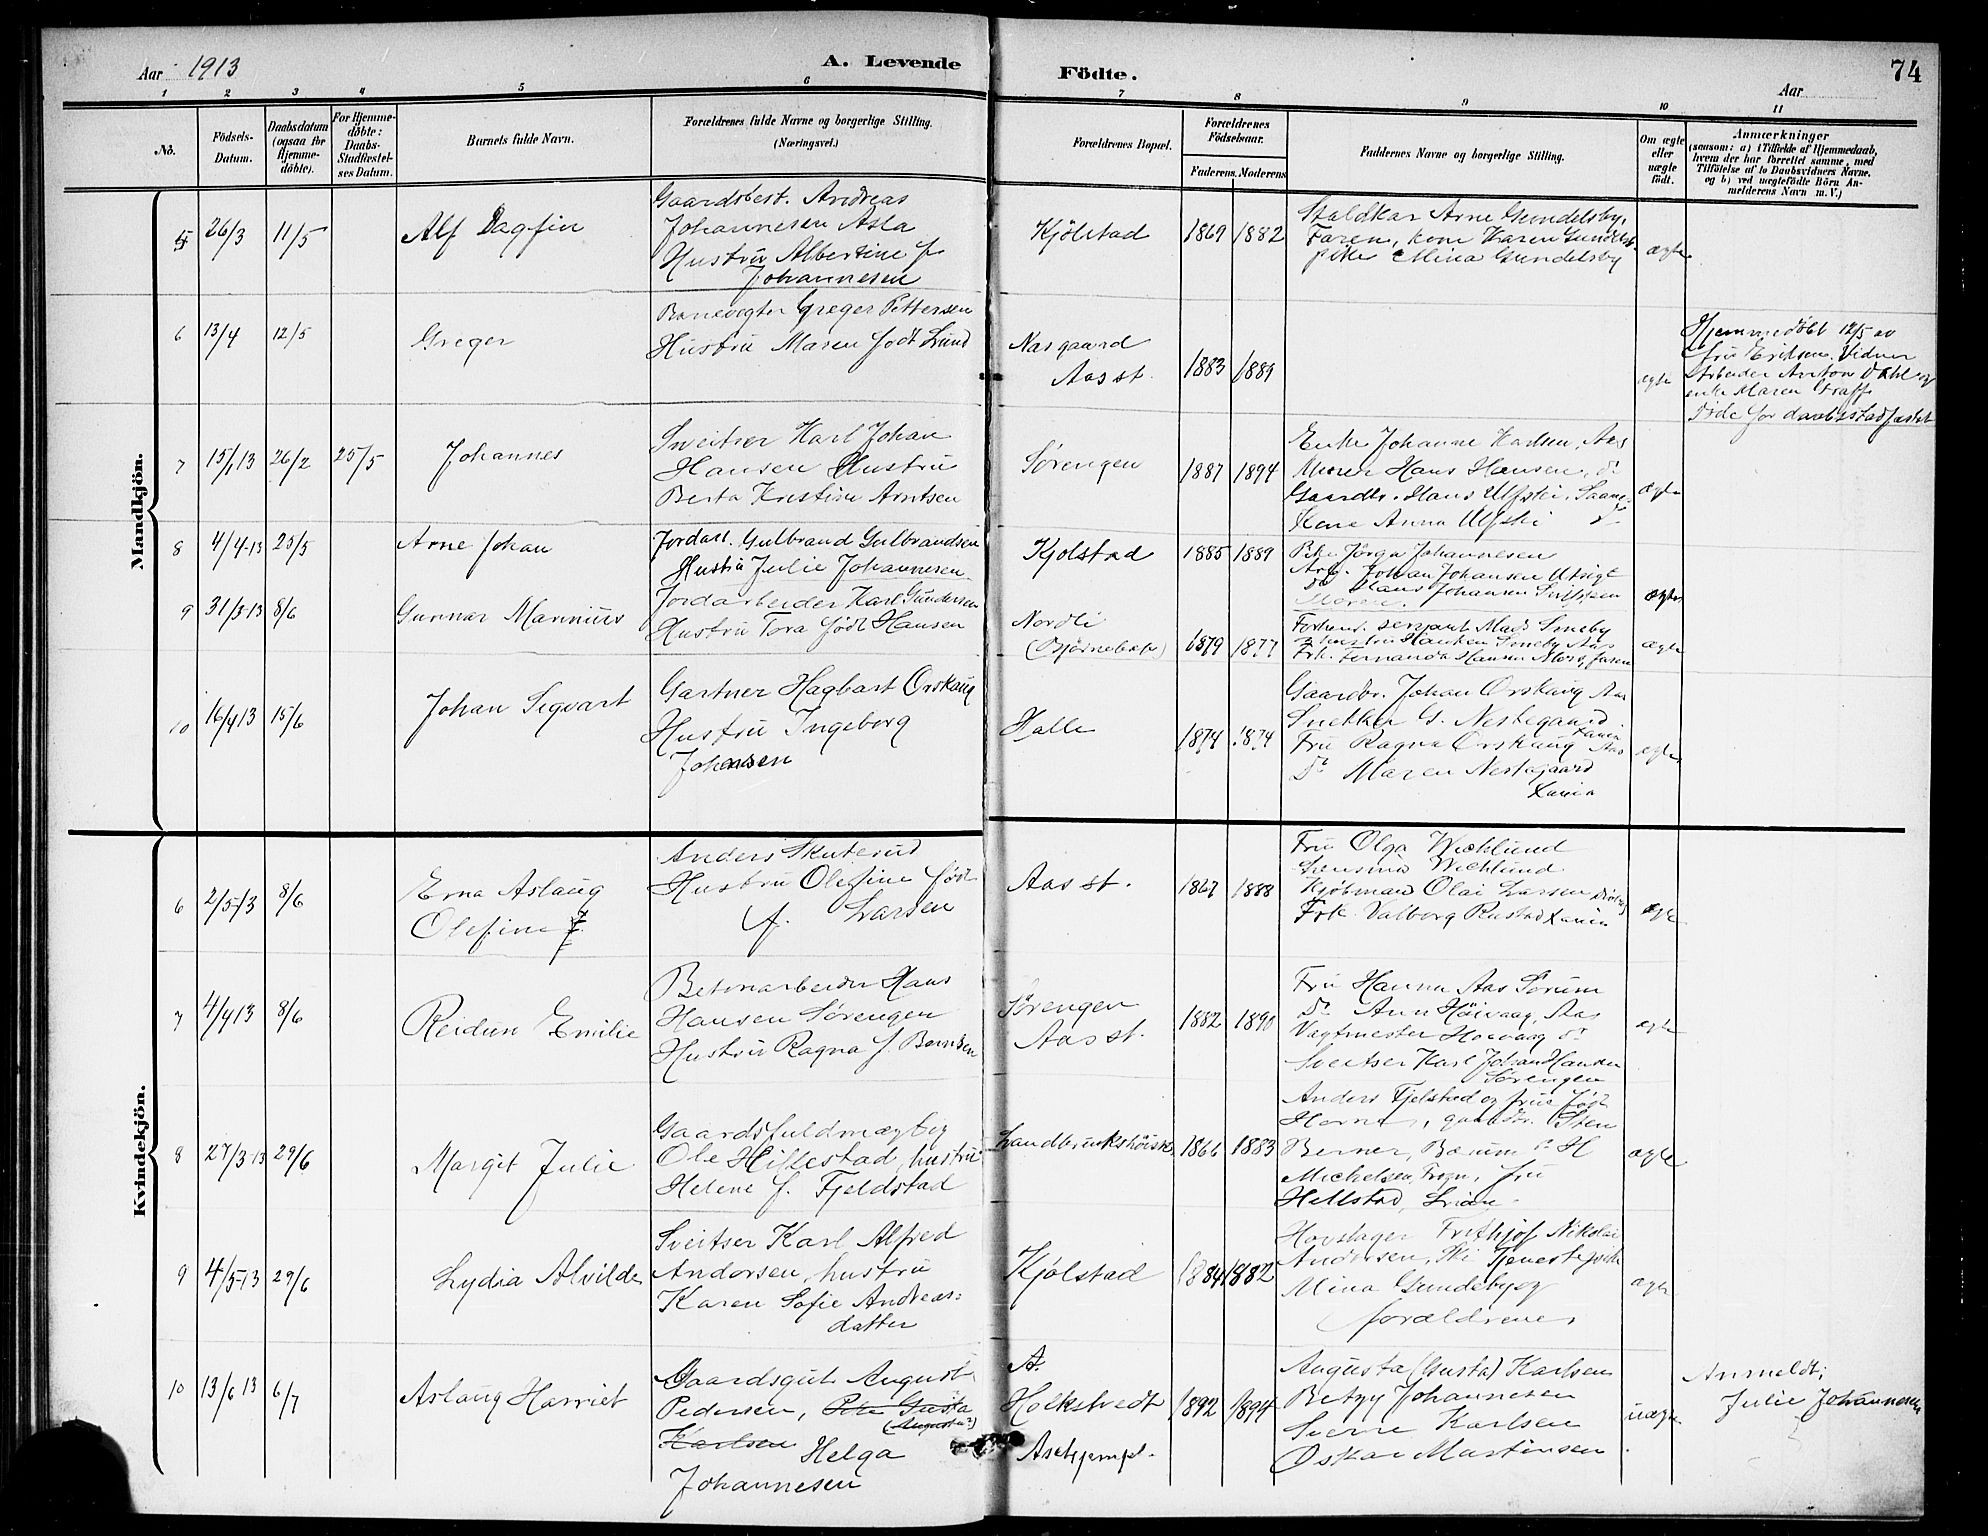 Aar 1913
A. Levende
Födte.
74
Aar
1 2 3 4 5 6 7 8 9 10 11
No.
Födsels-
Datum.
Daabsdatum
(ogsaa for
Hjemme-
döbte).
For Hjemme-
döbte:
Daabs-
Stadfæstel-
ses Datum.
Barnets fulde Navn.
Forældrenes fulde Navne og borgerlige Stilling.
(Næringsvei.)
Forældrenes Bopæl.
Forældrenes
Födselsaar.
Faderens. Moderens.
Faddernes Navne og borgerlige Stilling.
Om ægte
eller
uægte
født.
Anmærkninger
(saasom: a) i Tilfælde af Hjemmedaab,
hvem der har forrettet samme, med
Tilføielse af to Daabsvidners Navne.
og b) ved uægtefödte Börn An-
melderens Navn m. V.)
Mandkjön.
5 26/3 11/5
Alf Dagfin
Gaardsbest. Andreas
Johannesen Asla
Hustru Albertine f.
Johannesen
Kjölstad
1869 1882
Staldkar Arne Gundelsby,
Faren, kone Karen Gundelsb.
pike Mina Gundelsby
ægte
6 13/4 12/5
Greger
Banevogter Greger Pettersen
Hustru Maren født Lund
Norgaard
Aas st.
1883 1889
ægte
Hjemmedöbt 12/5 av
fru Eriksen. Vidner
Arbeider Anton Dahl og
enke Maren Graff
Døde før daabsstadfæstet
7 15/1 13 26/2 25/5
Johannes
Sveitser Karl Johan
Hansen Hustru
Berta Kristine Arntsen
Sörengen
1887 1894
Enke Johanne Karlsen, Aas
Murer Hans Hansen, do
Gaardbr. Hans Ulfski, Saane
Kone Anna Ulfski do
ægte
8 4/4-13 25/5
Arne Johan
Jordarb. Gulbrand Gulbrandsen
Hustru Julie Johannesen
Kjolstad
1885 1889
Pike Jörga Johannesen
Arb. Johan Johansen Utsigt
do Hans Johansen
Moren.
ægte
9 31/3-13 8/6
Gunnar Marinius
Jordarbeider Karl Gundersen
Hustru Tora født Hansen
Nordli
1879 1877
Forhenv. sersjant Mads Smeby
Hustru Smeby Aas
Frk. Fernanda Hansen Moss, faren
ægte
10 16/4 13 15/6
Johan Sigvart
Gartner Hagbart Orskaug
Hustru Ingeborg
Johansen
Halle
1874 1874
Gaardbr. Johan Orskaug Aas
Snekker G. Nestegaard
Xania
Fru Ragna Orskaug Aas
do Maren Nestegaard
Xania
ægte
Kvindekjön.
6 2/5-13 8/6
Erna Aslaug
Olefine
Anders Skuterud
Hustru Olefine født
f. Larsen
Aas st.
1867 1888
Fru Olga Wicklund
Wicklund
Kjöbmand Olai Larsen Dröbag
Frk. Valborg Rustad Xania
ægte
7 4/4 13 8/6
Reidun Emilie
Betonarbeider Hans
Hansen Sörengen
Hustru Ragna f. Berntsen
Sörengen
Aas st.
1882 1890
Fru Hanna Aas Sörum
do Ann Höivaag, Aas
Vagtmester Hoivaag do
Sveitser Karl Johan Hansen
Sörengen
ægte
8 27/3-13 29/6
Margit Julie
Gaardsfuldmægtig
Ole Hillestad, hustru
Helene f. Fjeldstad
Landbrukshöisk.
1866 1883
Anders Fjelstad og frue født
Horne, gaardbr. Sten
Berner, Bærum, do H
Michelsen Frogn, fru
Hellstad, Lian
ægte
9 4/5-13 29/6
Lydia Alvilde
Sveitser Karl Alfred
Andersen, hustru
Karen Sofie Andreas-
datter
Kjølstad
1884 1882
Hovslager Frithjof Nikolai
Andersen, Ski Tjenestepike
Mina Gundebyog
forældrene,
ægte
10 13/6 13 6/7
Aslaug Harriet
Gaardsgut August
Pedersen, Pike Gusta
(Augusta?)
Karlsen Helga
Johannesen
A.
Holkstvedt
1892 1894
Augusta (Gusta) Karlsen
Betzy Johannesen
Sverre Karlsen
Oskar Martinsen
uægte
Anmeldt;
Julie Johannesen